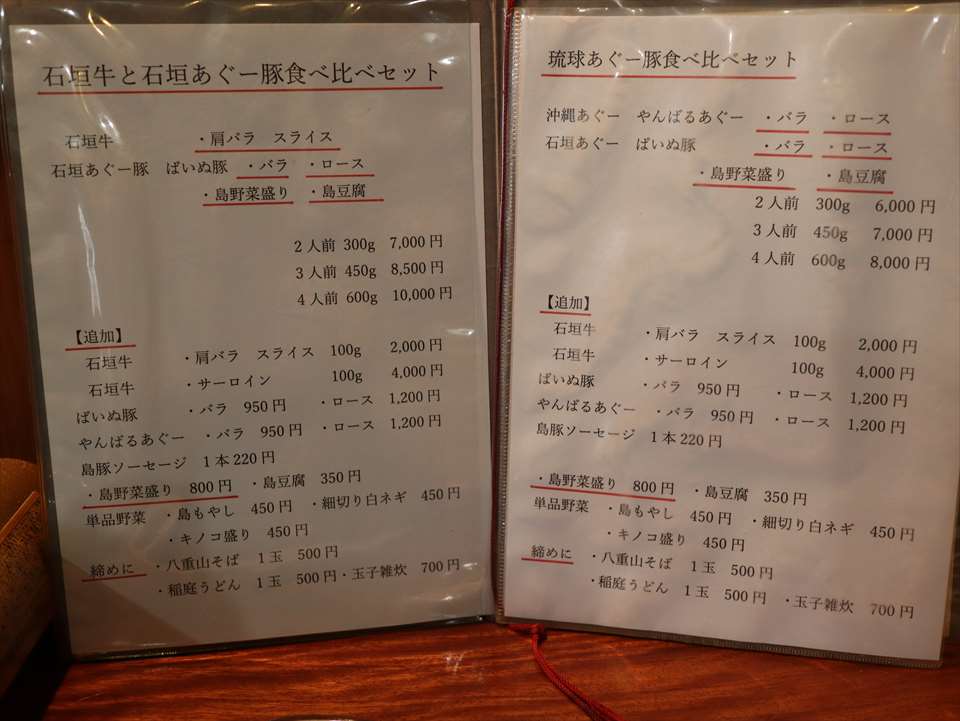 石垣牛と石垣あぐー豚食べ比べセット
石垣牛　・肩バラ　スライス
石垣あぐー豚　ぱいぬ豚　・バラ　・ロース
・島野菜盛り　・島豆腐
2人前 300g 7,000円
3人前 450g 8,500円
4人前 600g 10,000円
【追加】
石垣牛　・肩バラ　スライス　100g　2,000円
石垣牛　・サーロイン　100g　4,000円
ぱいぬ豚　・バラ　950円　・ロース　1,200円
やんばるあぐー　・バラ　950円　・ロース　1,200円
島豚ソーセージ　1本220円
・島野菜盛り　800円　・島豆腐　350円
単品野菜　・島もやし　450円　・細切り白ネギ　450円
・キノコ盛り　450円
締めに　・八重山そば　1玉　500円
・稲庭うどん　1玉　500円・玉子雑炊　700円
琉球あぐー豚食べ比べセット
沖縄あぐー　やんばるあぐー　・バラ　・ロース
石垣あぐー　ぱいぬ豚　・バラ　・ロース
・島野菜盛り　・島豆腐
2人前　300g　6,000円
3人前　450g　7,000円
4人前　600g　8,000円
【追加】
石垣牛　・肩バラ　スライス　100g　2,000円
石垣牛　・サーロイン　100g　4,000円
ぱいぬ豚　・バラ　950円　・ロース　1,200円
やんばるあぐー　・バラ　950円　・ロース　1,200円
島豚ソーセージ　1本220円
・島野菜盛り　800円　・島豆腐　350円
単品野菜　・島もやし　450円　・細切り白ネギ　450円
・キノコ盛り　450円
締めに　・八重山そば　1玉　500円
・稲庭うどん　1玉　500円　・玉子雑炊　700円